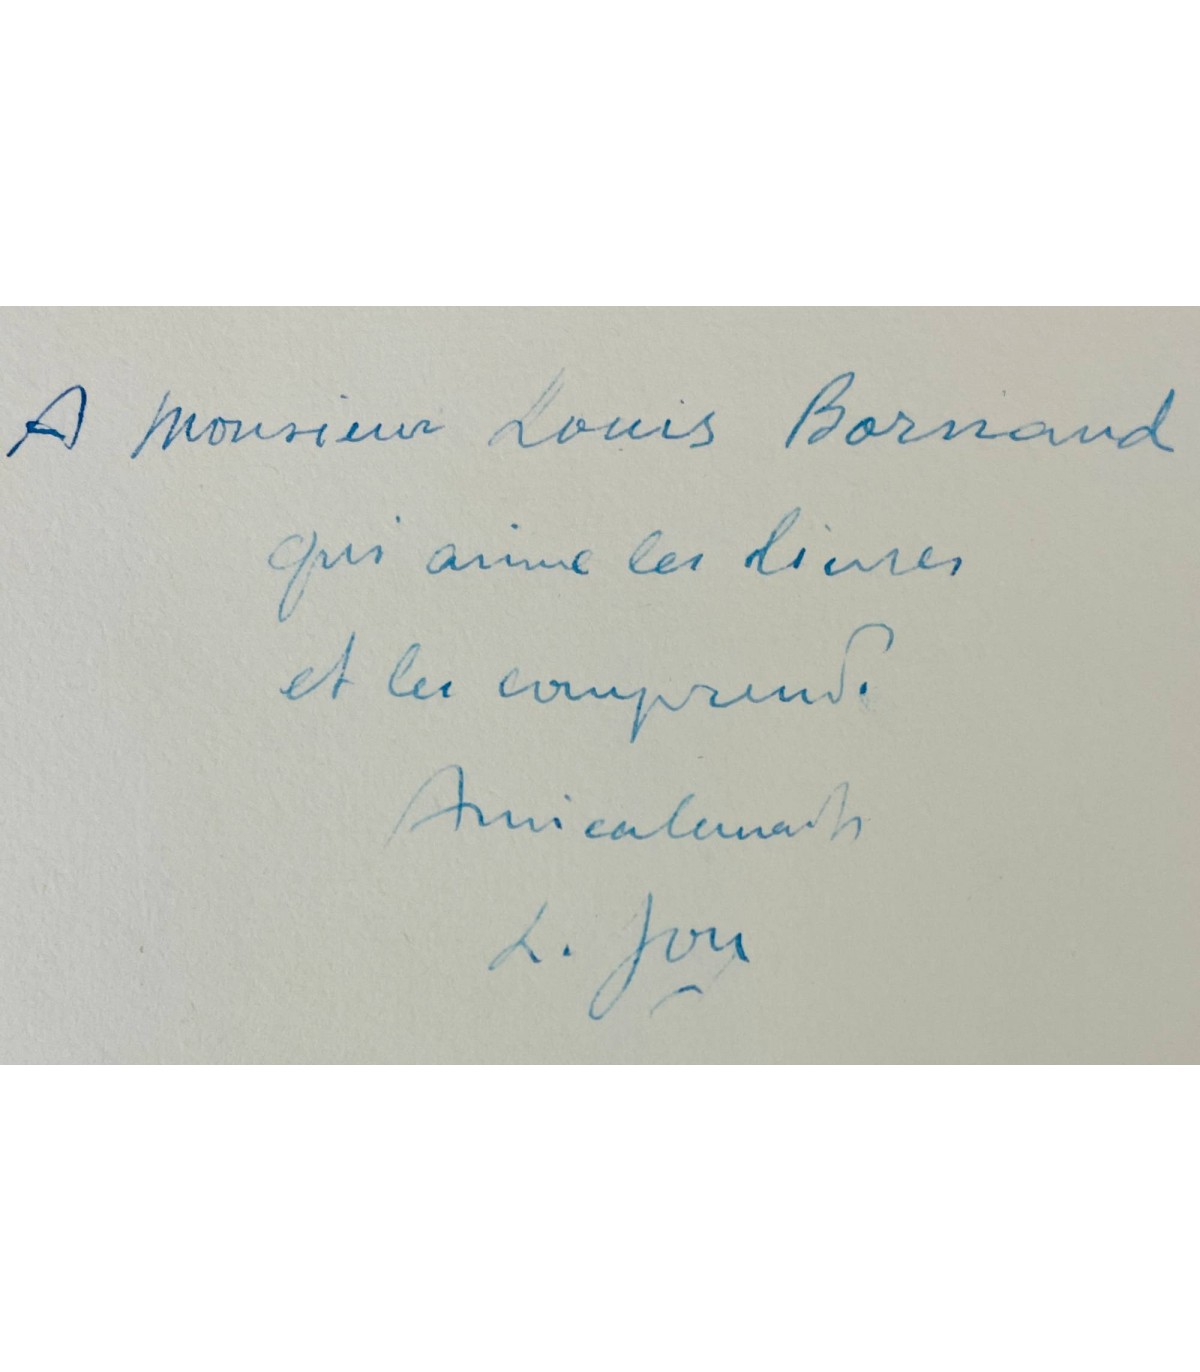 A Monsieur Louis Bornand
qui aime les livres
et les comprend.
Amicalement
L. Jou